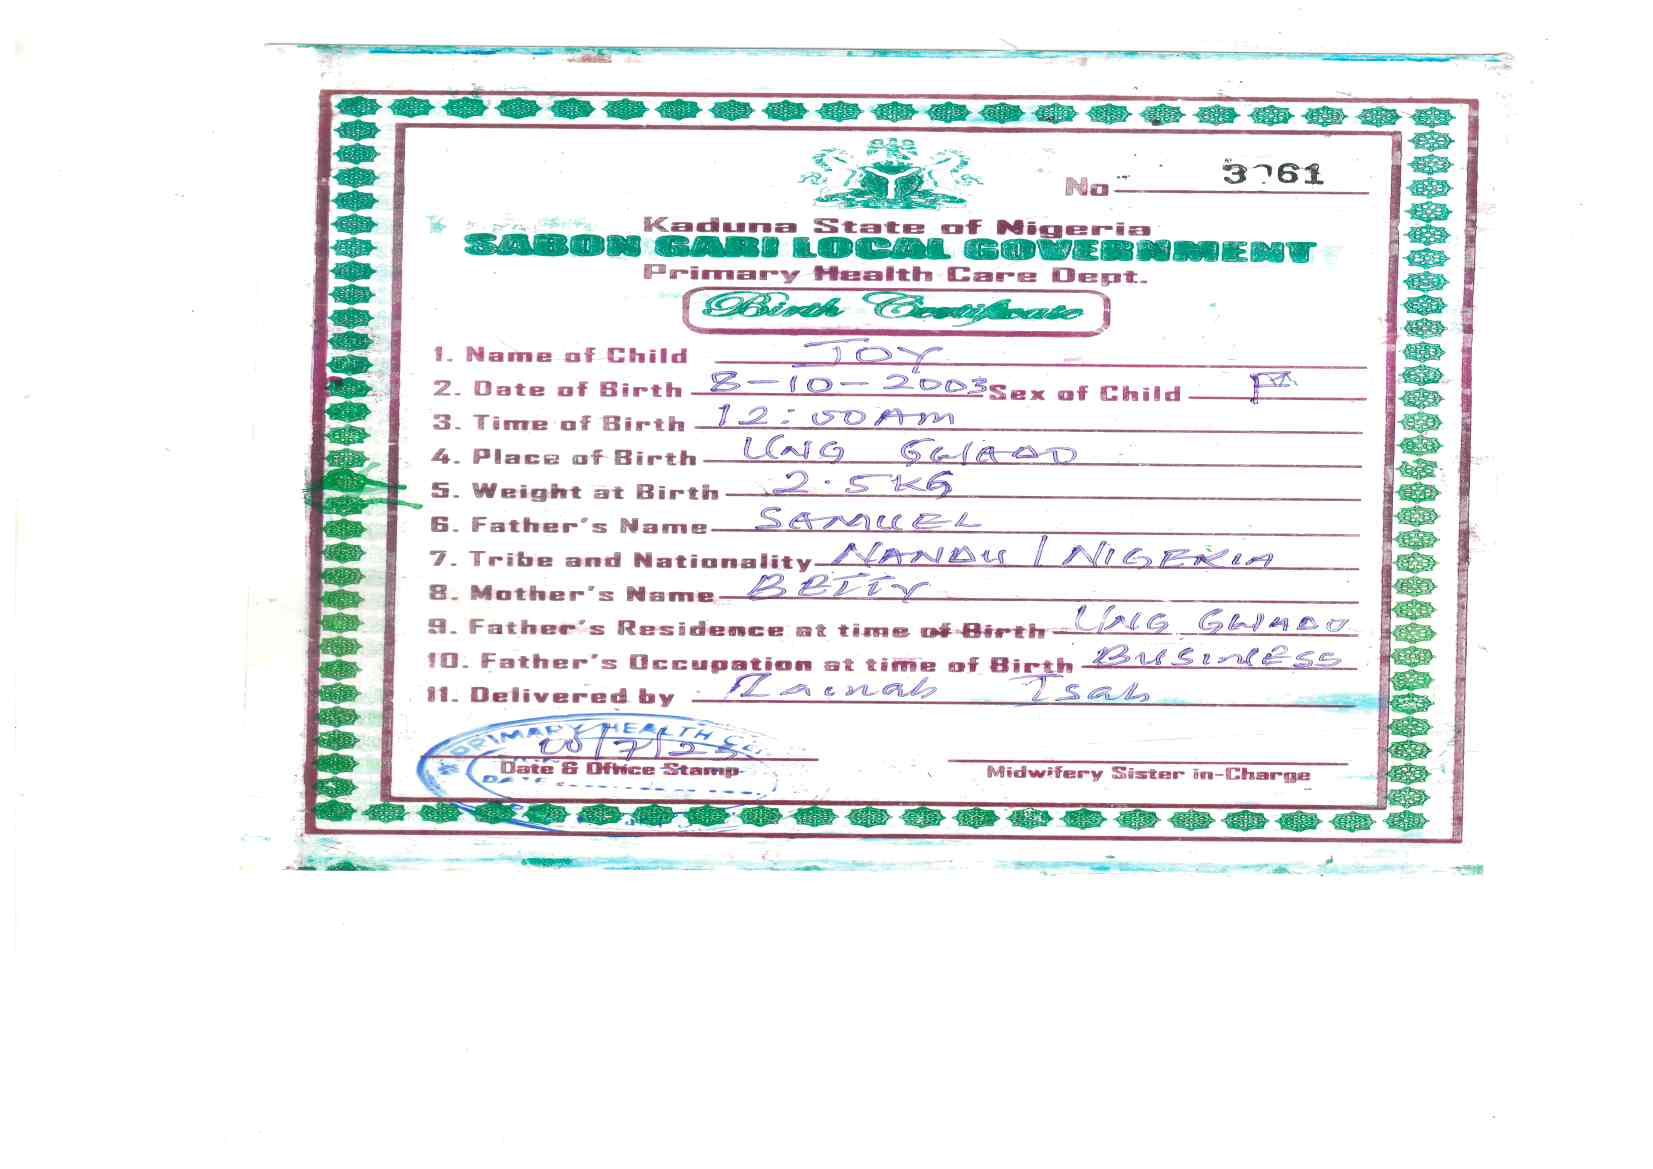 No 3061
Kaduna State of Nigeria
SABON GARI LOCAL GOVERNMENT
Primary Health Care Dept.
Birth Certificate
1. Name of Child JOY
2. Date of Birth 8-10-2003 Sex of Child F
3. Time of Birth 12:00AM
4. Place of Birth UNG GWADO
5. Weight at Birth 2.5KG
6. Father's Name SAMUEL
7. Tribe and Nationality NANDU / NIGERIA
8. Mother's Name BETTY
9. Father's Residence at time of Birth UNG GWADO
10. Father's Occupation at time of Birth BUSINESS
11. Delivered by Zainab Isah
PRIMARY HEALTH
Date & Office Stamp
DATE
Midwifery Sister in-Charge